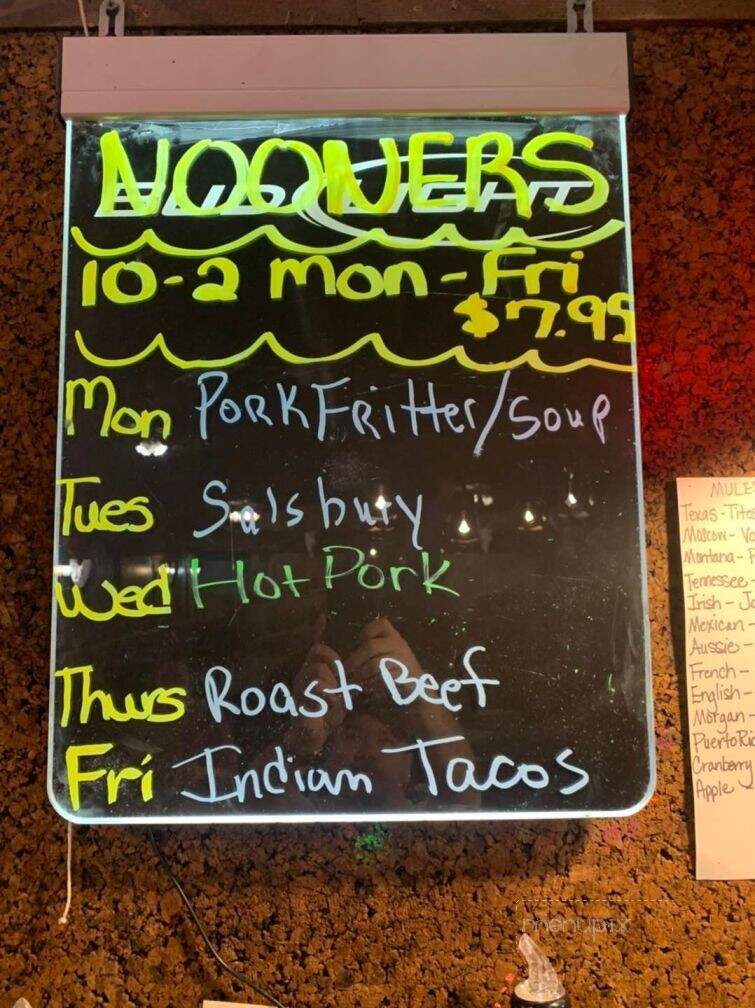 NOONERS
BUD LIGHT
10-2 Mon-Fri
$7.95
Mon Pork Fritter/Soup
Tues Salsbury
Wed Hot Pork
Thurs Roast Beef
Fri Indian Tacos
MULES
Texas - Titos
Moscow - Vo
Montana - P
Tennessee -
Irish - Ja
Mexican -
Aussie -
French -
English -
Morgan -
Puerto Ric
Cranberry
Apple -
menupix